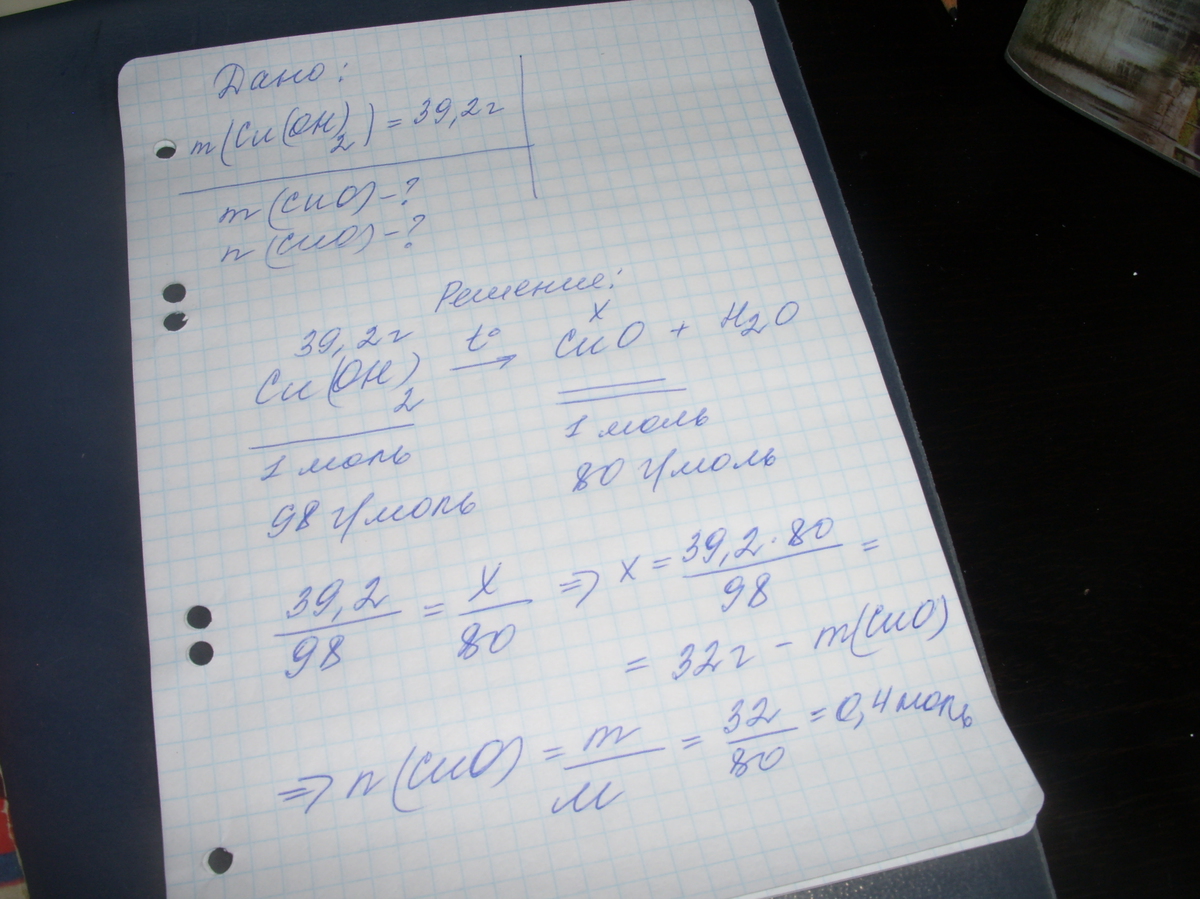 Дано:
m(Cu(OH)2) = 39,2г
m(CuO)-?
n(CuO)-?
Решение:
39,2г t° x
Cu(OH)2 → CuO + H2O
1 моль 1 моль
98 г/моль 80 г/моль
39,2/98 = x/80 => x = 39,2·80/98 =
= 32г - m(CuO)
=> n(CuO) = m/M = 32/80 = 0,4 моль